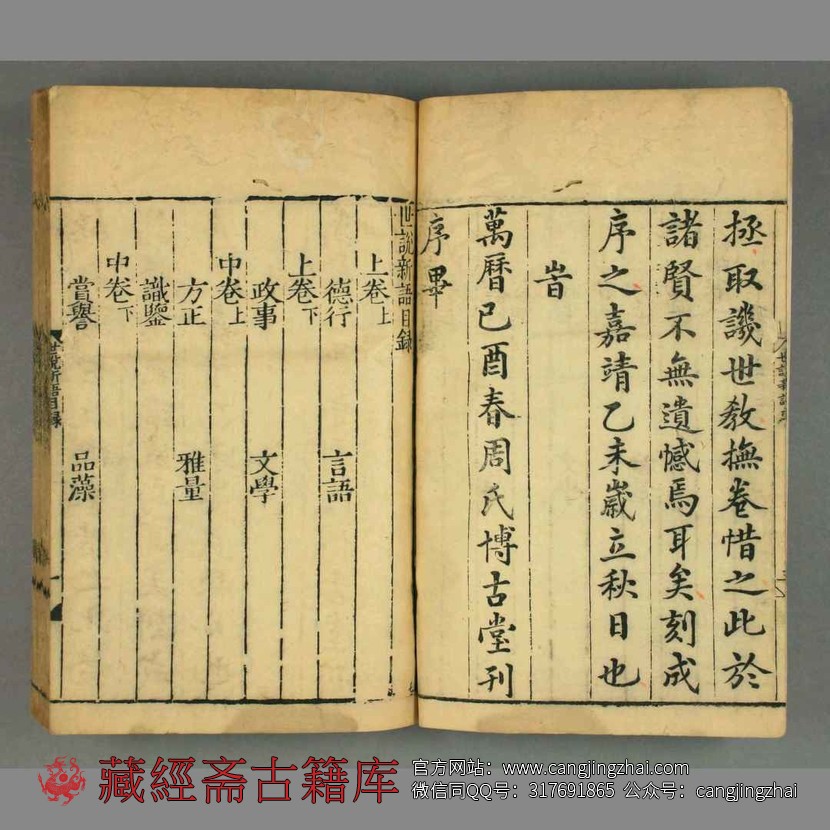 拯取譏世教撫卷惜之此於
諸賢不無遺憾焉耳矣刻成
序之嘉靖乙未歲立秋日也
旹
萬曆己酉春周氏博古堂刊
序畢
世說新語目録
上卷上
德行 言語
上卷下
政事 文學
中卷上
方正 雅量
識鑒
中卷下
賞譽 品藻
世說新語目録
藏經斋古籍库
官方网站：www.cangjingzhai.com
微信同QQ号：317691865 公众号：cangjingzhai